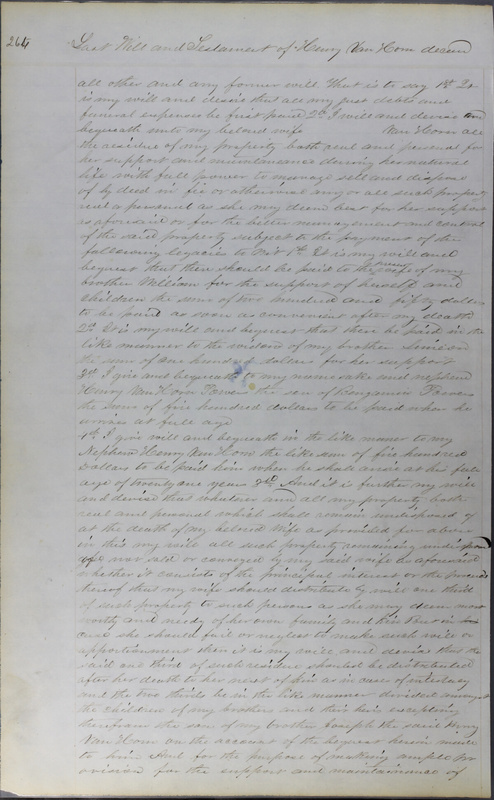 264 Last Will and Testament of Henry Van Horn decsd
all other and any former will That is to say 1st It
is my will and desire that all my just debts and
funeral expenses be first paid 2d I will and devise and
bequeath unto my beloved wife Van Horn all
the residue of my property both real and personal for
her support and maintainance during her natural
life with full power to manage sell and dispose
of by deed in fee or otherwise any or all such property
real or personal as she may deem best for her support
as aforesaid or for the better management and control
of the said property subject to the payment of the
following legacies to Wit 1st It is my will and
bequest that there should be paid to the wife of my
brother William for the support of herself and
children the sum of two hundred and fifty dollars
to be paid as soon as convenient after my death
2d It is my will and bequest that there be paid in the
like manner to the widow of my brother
the sum of one hundred dollars for her support
3d I give and bequeath to my namesake and nephew
Henry Van Horn Powers the son of Benjamin Powers
the sum of five hundred dollars to be paid when he
arrives at full age
4th I give will and bequeath in the like manner to my
Nephew Henry Van Horn the like sum of five hundred
Dollars to be paid him when he shall arise at his full
age of twenty one years And it is further my will
and devise that whatever and all my property both
real and personal which shall remain undisposed of
at the death of my beloved wife as provided for above
in this my will all such property remaining
not sold or conveyed by my said wife as aforesaid
whether it consists of the principal interest or the proceeds
thereof that my wife should distribute by will one third
of such property to such persons as she may deem most
worthy and needy of her own family and kin but in
case she should fail or neglect to make such will or
apportionment then it is my will and devise that the
said one third of such residue should be distributed
after her death to her next of kin as in case of intestacy
and the two thirds be in the like manner divided amongst
the children of my brothers and their heirs excepting
therefrom the son of my brother Joseph the said Henry
Van Horn on the account of the bequest herein made
to him And for the purpose of making ample pro
vision for the support and maintainance of